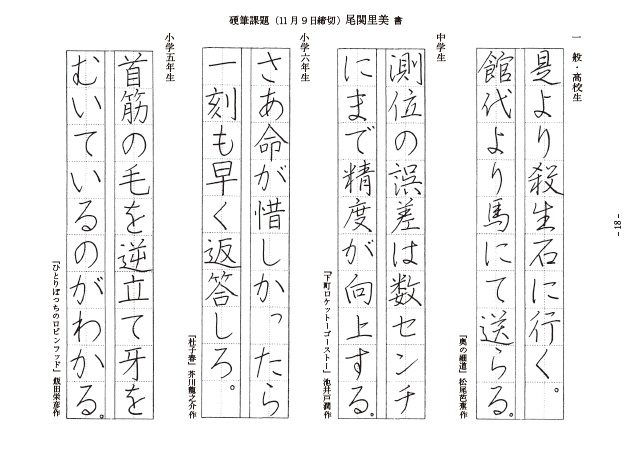 硬筆課題（11月9日締切）尾関里美 書
一般・高校生
是より殺生石に行く。
館代より馬にて送らる。
『奥の細道』松尾芭蕉作
中学生
測位の誤差は数センチ
にまで精度が向上する。
『下町ロケットーゴーストー』池井戸潤作
小学六年生
さあ命が惜しかったら
一刻も早く返答しろ。
『杜子春』芥川龍之介作
小学五年生
首筋の毛を逆立て牙を
むいているのがわかる。
『ひとりぼっちのロビンフッド』飯田栄彦作
- 18 -